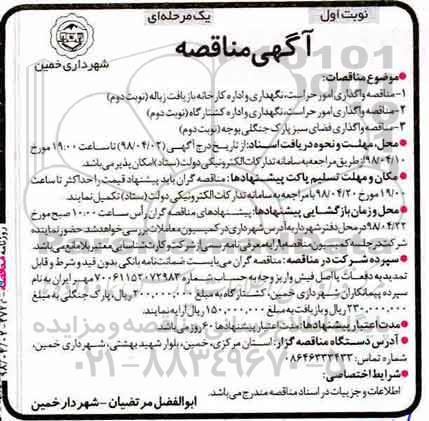 نوبت اول
یک مرحله‌ای
آگهی مناقصه
شهرداری خمین
موضوع مناقصات:
۱- مناقصه واگذاری امور حراست، نگهداری و اداره کارخانه بازیافت زباله (نوبت دوم)
۲- مناقصه واگذاری امور حراست، نگهداری و اداره کشتارگاه (نوبت دوم)
۳- مناقصه واگذاری فضای سبز پارک جنگلی بوجه (نوبت دوم)
محل، مهلت و نحوه دریافت اسناد: از تاریخ درج آگهی (۹۸/۰۴/۰۲) تا ساعت ۱۹:۰۰ مورخ
۹۸/۰۴/۱۰ از طریق مراجعه به سامانه تدارکات الکترونیکی دولت (ستاد) امکان پذیر می باشد.
مکان و مهلت تسلیم پاکت پیشنهادها: مناقصه گران باید پیشنهاد قیمت را حداکثر تا ساعت
۱۹:۰۰ مورخ ۹۸/۰۴/۲۰ با مراجعه به سامانه تدارکات الکترونیکی دولت (ستاد) تکمیل نمایند.
محل و زمان بازگشایی پیشنهادها: پیشنهادهای مناقصه گران رأس ساعت ۱۰:۰۰ صبح مورخ
۹۸/۰۴/۲۲ در محل دفتر شهردار به آدرس شهرداری در کمیسیون معاملات بررسی خواهد شد. حضور نماینده
شرکت در جلسه کمیسیون مناقصه با ارایه معرفی نامه رسمی و مهردار شرکت و کارت شناسایی معتبر بلامانع می باشد.
سپرده شرکت در مناقصه: مناقصه گران می بایست ضمانت نامه بانکی بدون قید و شرط و قابل
تمدید به دفعات یا اصل فیش واریز وجه به حساب شماره ۷۰۰۶۱۱۵۳۰۷۲۹۸۳ مهر ایران به نام
سپرده پیمانکاران شهرداری خمین، کشتارگاه به مبلغ ۲۰۰,۰۰۰,۰۰۰ ریال، پارک جنگلی به مبلغ
۲۳۰,۰۰۰,۰۰۰ ریال و بازیافت به مبلغ ۱۵۰,۰۰۰,۰۰۰ ریال ارایه نمایند.
مدت اعتبار پیشنهادها: مدت اعتبار پیشنهادها ۶۰ روز می باشد.
آدرس دستگاه مناقصه گزار: استان مرکزی، خمین، بلوار شهید بهشتی، شهرداری خمین،
شماره تماس: ۰۸۶۴۶۳۳۳۴۳۳
شرایط اختصاصی:
اطلاعات و جزییات در اسناد مناقصه مندرج می باشد.
ابوالفضل مرتضیان - شهردار خمین
۰۲۱-۸۸۳۴۹۶۷۰-۵